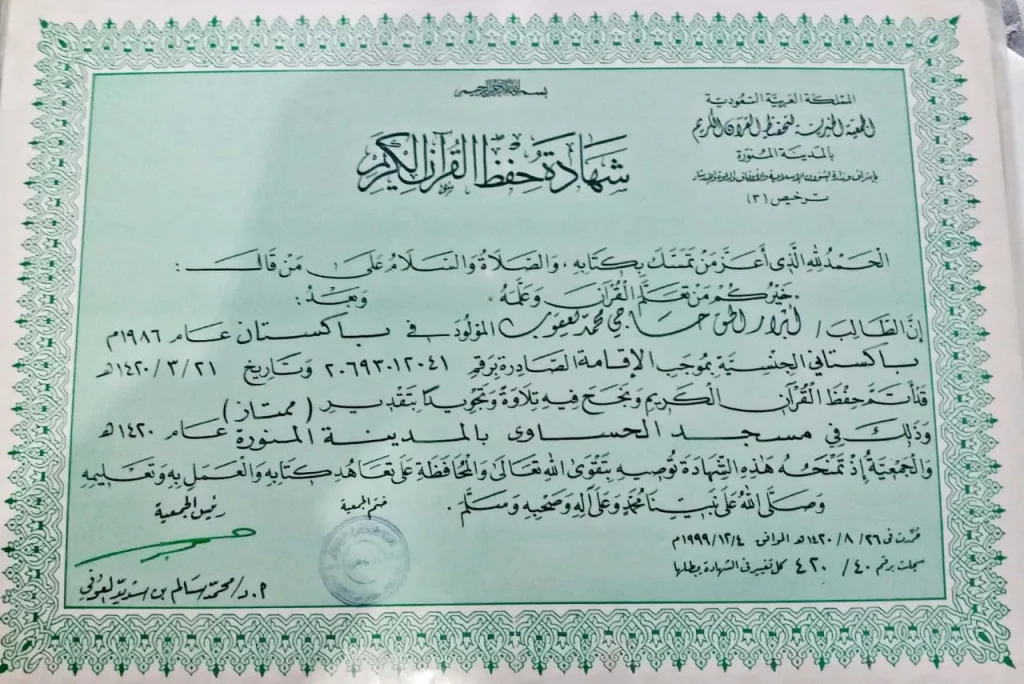 بسم الله الرحمن الرحيم
المملكة العربية السعودية
الجمعية الخيرية لتحفيظ القرآن الكريم
بالمدينة المنورة
بإشراف وزارة الشؤون الإسلامية والأوقاف والدعوة والإرشاد
ترخيص (٣)
شهادة حفظ القرآن الكريم
الحمد لله الذي أعز من تمسك بكتابه، والصلاة والسلام على من قال :
خيركم من تعلم القرآن وعلمه . وبعد :
إن الطالب / أبرار الحق حاجي محمد يعقوب المولود في باكستان عام ١٩٨٦م
باكستاني الجنسية بموجب الإقامة الصادرة برقم ٢٠٦٩٣٠١٢٠٤١ وتاريخ ١٤٢٠/٣/٢١هـ
قد أتم حفظ القرآن الكريم ونجح فيه تلاوة وتجويدا بتقدير (ممتاز)
وذلك في مسجد الحساوي بالمدينة المنورة عام ١٤٢٠هـ
والجمعية إذ تمنحه هذه الشهادة توصيه بتقوى الله تعالى والمحافظة على تعاهد كتابه والعمل به وتعليمه
وصلى الله على نبينا محمد وعلى آله وصحبه وسلم .
حررت في ١٤٢٠/٨/٢٦هـ الموافق ١٩٩٩/١٢/٤م
سجلت برقم ٤٢٠/٤٠ كل تغيير في الشهادة يبطلها
ختم الجمعية
رئيس الجمعية
أ.د/ محمد سالم بن شديد العوفي